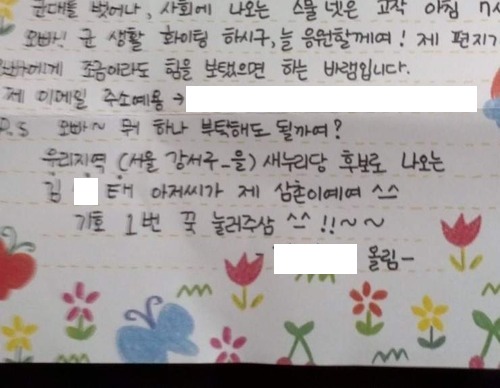 군대를 벗어나, 사회에 나오는 스물 넷은 고작 아침
오빠! 군 생활 화이팅 하시구, 늘 응원할게여! 제 편지가
오빠에게 조금이라도 힘을 보탰으면 하는 바램입니다.
제 이메일 주소예용 →
P.S 오빠~ 뭐 하나 부탁해도 될까여?
우리지역 (서울 강서구_을) 새누리당 후보로 나오는
김 태 아저씨가 제 삼촌이예여 ^^
기호 1번 꾹 눌러주삼 ^^ !!~~
- 올림-